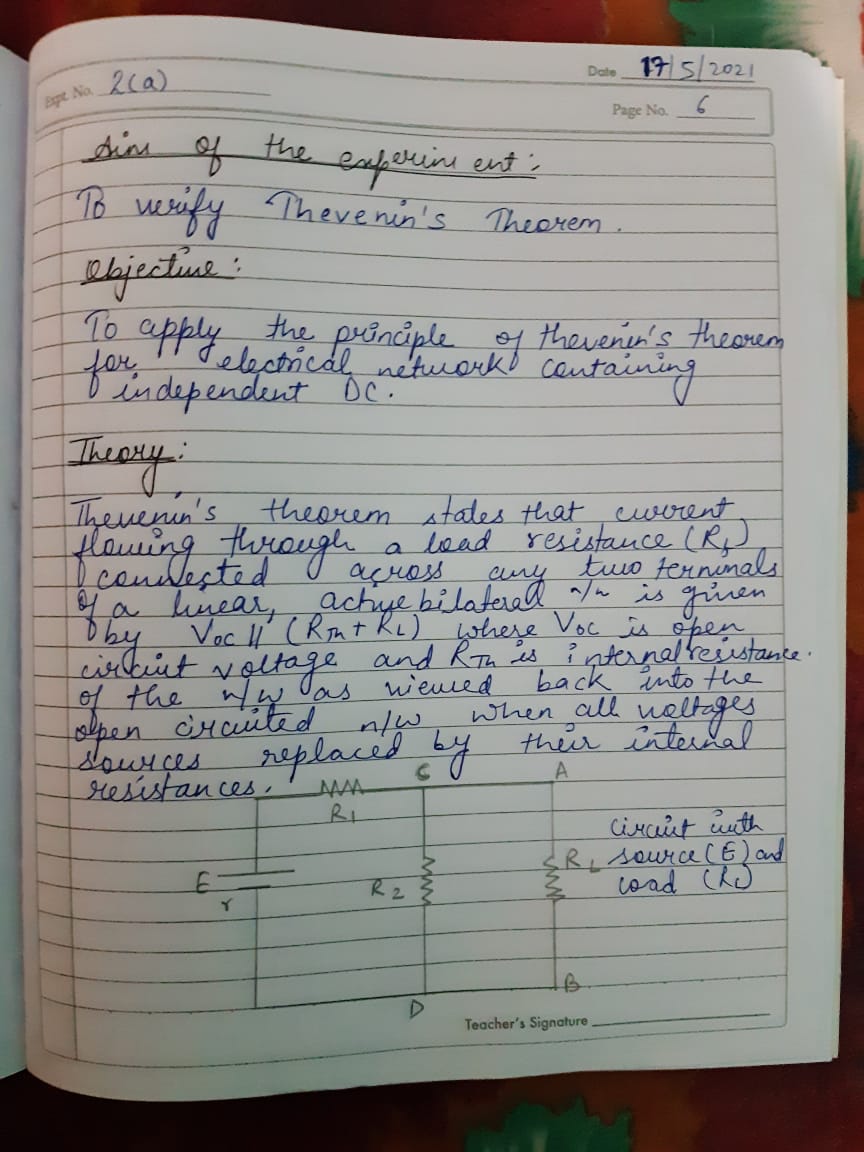 Expt. No. 2(a)
Date 17/5/2021
Page No. 6
Aim of the experiment :
To verify Thevenin's Theorem.
Objective :
To apply the principle of thevenin's theorem
for electrical network containing
independent DC.
Theory :
Thevenin's theorem states that current
flowing through a load resistance (RL)
connected across any two terminals
of a linear, active bilateral n/w is given
by Voc || (RTh + RL) where Voc is open
circuit voltage and RTh is internal resistance.
of the n/w as viewed back into the
open circuited n/w when all voltages
sources replaced by their internal
resistances.
C A
R1
Circuit with
E R2 RL source (E) and
r load (RL)
B
D
Teacher's Signature